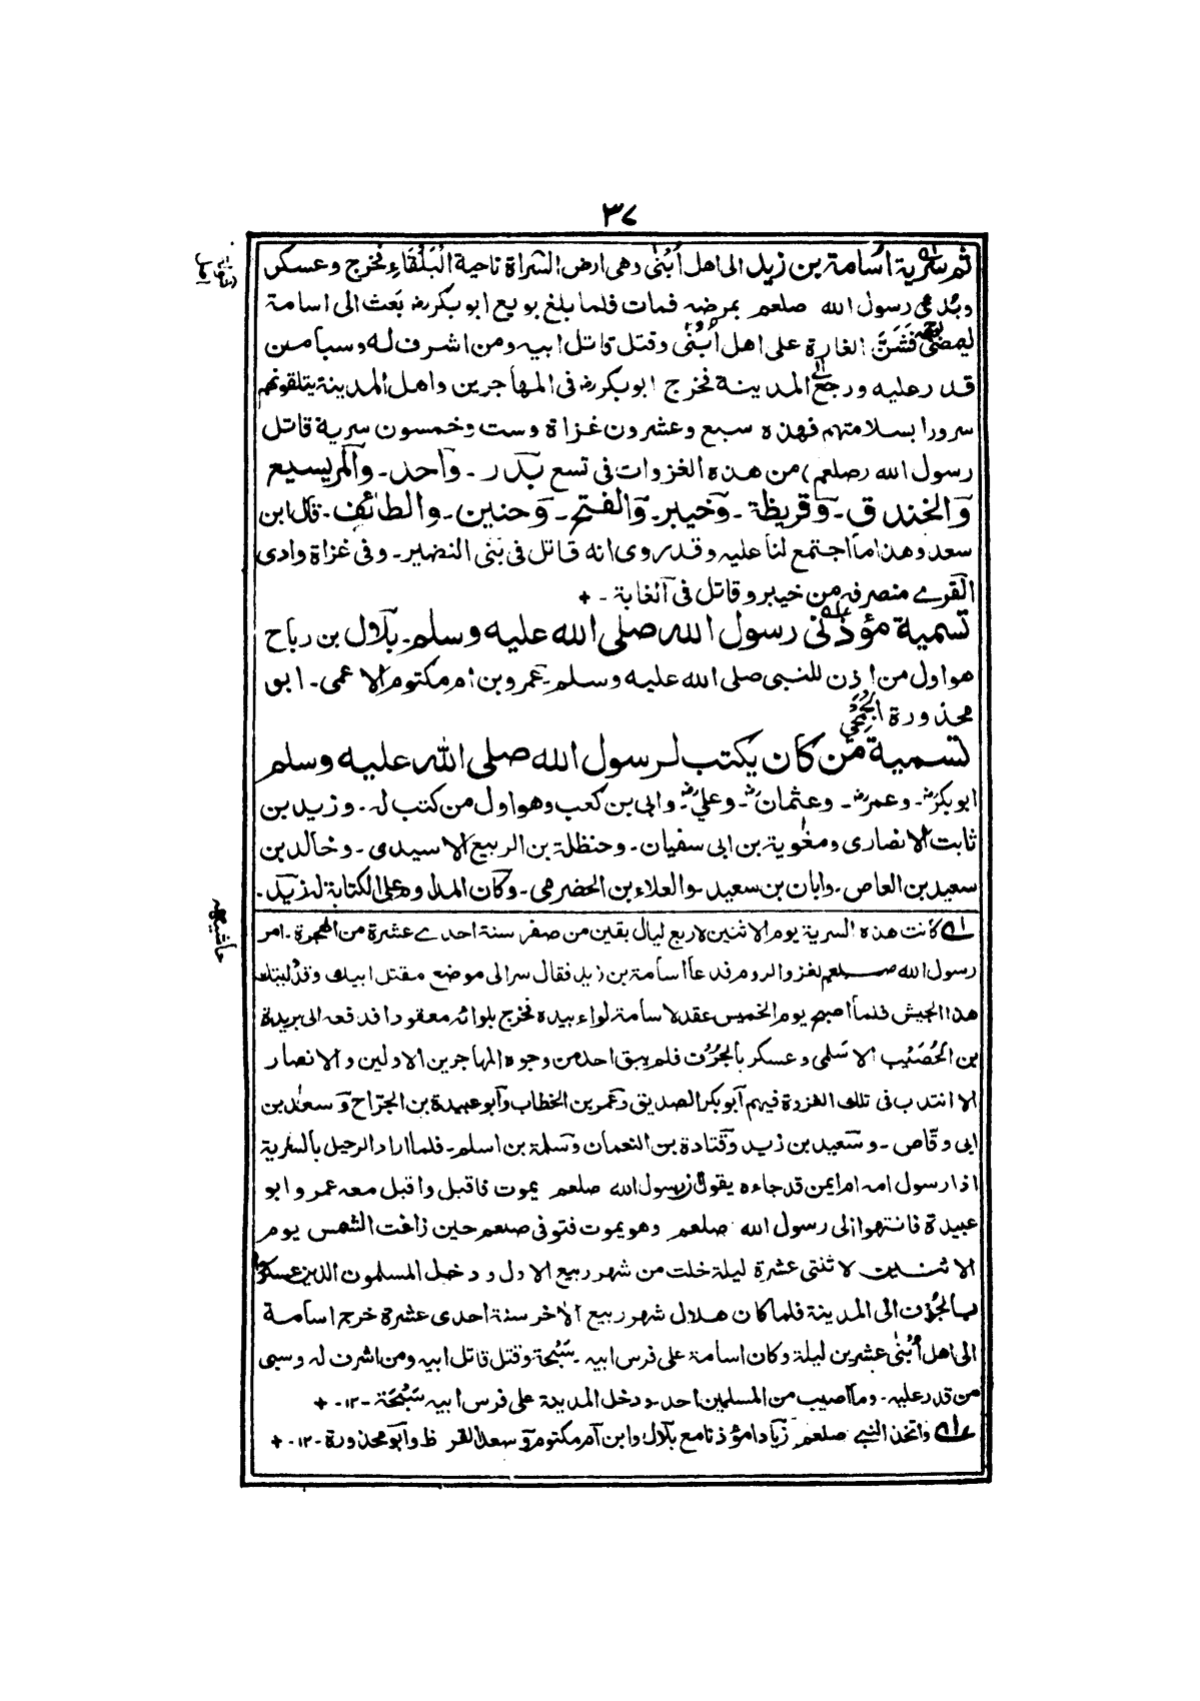 ٣٧
ثم سرية اسامة بن زيد الى اهل اُبْنٰى وهى ارض الشراة ناحية الْبَلْقَاءِ فخرج وعسكر
وبُدئ رسول الله صلعم بمرضه فمات فلما بلغ بويع ابو بكر رض بَعَث الى اسامة
ليمضى فَشَنَّ الغارة على اهل اُبْنٰى وقتل قاتل ابيه ومن اشرف له وسبا من
قدر عليه ورجع الى المدينة فخرج ابو بكر رض فى المهاجرين واهل المدينة يتلقونهم
سرورا بسلامتهم فهذه سبع وعشرون غزاة وست وخمسون سرية قاتل
رسول الله (صلعم) من هذه الغزوات فى تسع بدر ۔ واحد ۔ والمريسيع
والخندق ۔ وقريظة ۔ وخيبر ۔ والفتح ۔ وحنين ۔ والطائف ۔ قال ابن
سعد وهذا ما اجتمع لنا عليه وقد روى انه قاتل فى بنى النضير ۔ وفى غزاة وادى
القرے منصرفه من خيبر وقاتل فى الغابة ۔ +
تسمية مؤذنى رسول الله صلى الله عليه وسلم ۔ بلال بن رباح
هو اول من اذن للنبى صلى الله عليه وسلم ۔ عمرو بن ام مكتوم الاعمى ۔ ابو
محذورة الجُمَحِي
تسمية من كان يكتب لرسول الله صلى الله عليه وسلم
ابو بكر رض ۔ وعمر رض ۔ وعثمان رض ۔ وعلي رض ۔ وابى بن كعب وهو اول من كتب له ۔ وزيد بن
ثابت الانصارى ومعٰوية بن ابى سفيان ۔ وحنظلة بن الربيع الاسيدى ۔ وخالد بن
سعيد بن العاص ۔ وابان بن سعيد ۔ والعلاء بن الحضرمى ۔ وكان المداوم على الكتابة له زيد ۔
حاشيه
؎۱ كانت هذه السرية يوم الاثنين لاربع ليال بقين من صفر سنة احدے عشرة من الهجرة ۔ امر
رسول الله صلعم لغزو الروم فدعا اسامة بن زيد فقال سر الى موضع مقتل ابيك وقد وليتك
هذا الجيش فلما اصبح يوم الخميس عقد لاسامة لواء بيده فخرج بلوائه معقودا فدفعه الى بريدة
بن الحُصَيْب الاسلمى وعسكر بالجُرُف فلم يبق احد من وجوه المهاجرين الاولين والانصار
الا انتدب فى تلك الغزوة فيهم ابو بكر الصديق وعمر بن الخطاب وابو عبيدة بن الجراح وسعد بن
ابى وقاص ۔ وسعيد بن زيد وقتادة بن النعمان وسلمة بن اسلم ۔ فلما اراد الرحيل بالسرية
اذا رسول امه ام ايمن قد جاءه يقول ان رسول الله صلعم يموت فاقبل واقبل معه عمر وابو
عبيدة فانتهوا الى رسول الله صلعم وهو يموت فتوفى صلعم حين زاغت الشمس يوم
الاثنين لاثنتى عشرة ليلة خلت من شهر ربيع الاول ودخل المسلمون الذين عسكروا
بالجُرُف الى المدينة فلما كان هلال شهر ربيع الاخر سنة احدى عشرة خرج اسامة
الى اهل اُبْنٰى عشرين ليلة وكان اسامة على فرس ابيه ۔ سَبْحَة وقتل قاتل ابيه ومن اشرف له وسبى
من قدر عليه ۔ وما اصيب من المسلمين احد ۔ ودخل المدينة على فرس ابيه سَبْحَة ۔ ۱۲ ۔ +
؎۱ واتخذ النبي صلعم زيادا مؤذنا مع بلال وابن ام مكتوم وسعد القرظ وابو محذورة ۔ ۱۲ ۔ +